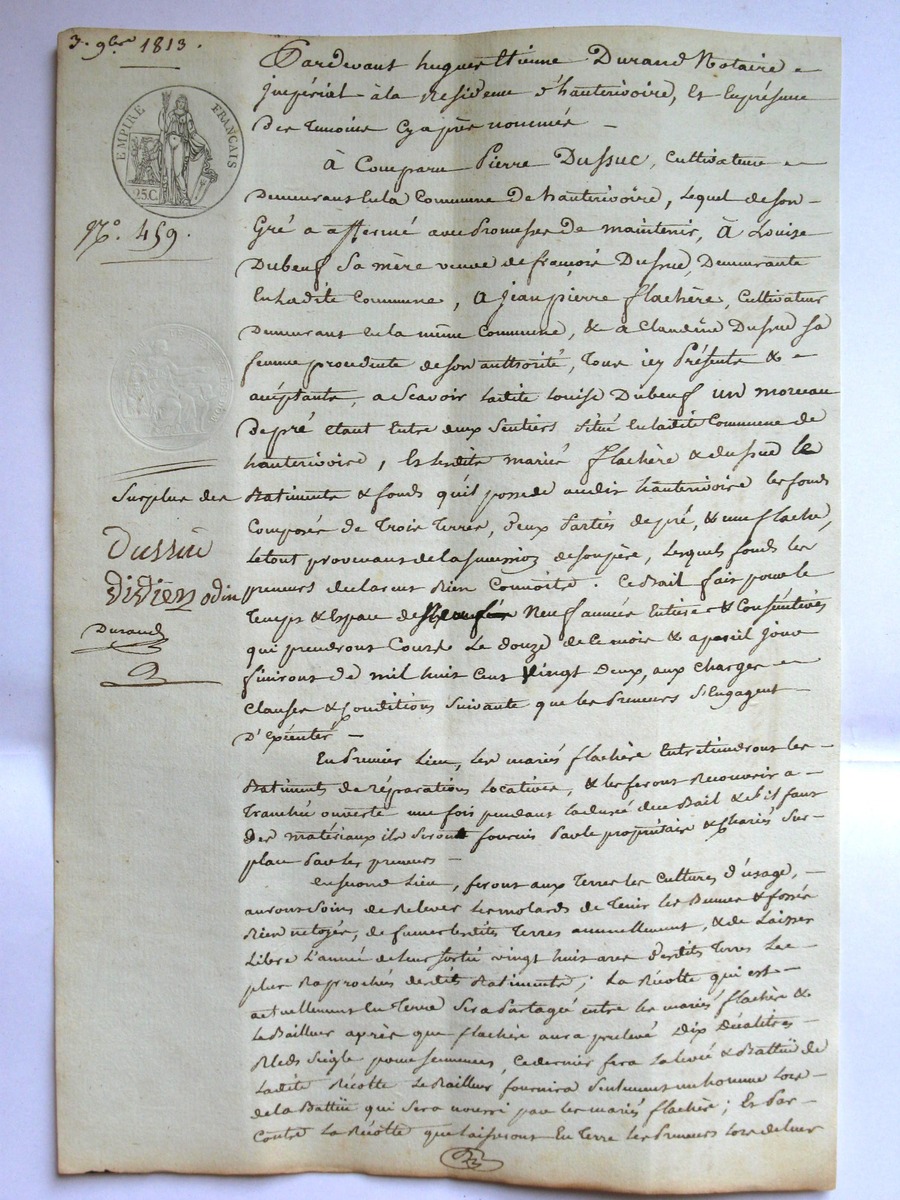 3. 9bre 1813.
EMPIRE FRANÇAIS
25C.
N.º 459.
Surplus des
Dussuc
Didier odin
Durand
Pardevant hugues Etienne Durand Notaire
impérial à la residence d'hauterivoire, Et En présence
des temoins cy après nommés
à Comparu Pierre Dussuc, Cultivateur
Demeurant En la Commune De hauterivoire, Lequel de son
Gré a affermé avec Promesse De maintenir, à Louise
Dubeuf sa mère veuve de françois Dussuc, Demeurante
En ladite Commune, a jean pierre flachère, Cultivateur
Demeurant En la même Commune, & a Claudine Dussuc sa
femme procedente de son authorité, Tous icy Présents &
acceptants, a Scavoir Ladite Louise Dubeuf un morceau
de pré étant Entre deux Sentiers situé En ladite Commune de
hauterivoire, Et lesdits mariés flachère & dussuc le
Batiments & fonds qu'il possede audit hauterivoire les fonds
Composés de Trois Terres, deux Parties de pré, & une flache,
le tout provenant de la succession de son père, Lesquels fonds les
preneurs declarent Bien Connoitre. Ce Bail fait pour le
Temps & Espace de Neuf années Entières & Consécutives
qui prendront Cours Le douze de Ce mois & a pareil jour
finiront de mil huit Cent Vingt Deux, aux charges
Clauses & Conditions Suivantes que les Preneurs S'Engagent
D'Exécuter
En Premier Lieu, Les mariés flachère Entretiendront les
Batiments de réparations Locatives, & les feront Recouvrir a
Tranchée ouverte une fois pendant la durée du Bail & s'il faut
Des matériaux ils Seront fournis Par le propriétaire & chariés Sur
place Par les preneurs
En second Lieu, feront aux Terres les Cultures d'usage,
auront Soins de Relever Les molards de Tenir les & fossés
Bien netoyés, de fumer lesdits Terres annuellement, & de Laisser
Libre L'année de leur sortie vingt huit ares desdits Terres Les
plus Raprochés desdits Batiments; La Récolte qui est
actuellement En Terre Sera Partagée entre les mariés flachère &
Le Bailleur après que flachère aura prélevé Dix Décalitres
Bleds Seigle pour Semences, Ce dernier fera La levée & Battüe de
Ladite Récolte Le Bailleur fournira Seulement un homme Lors
de la Battüe qui Sera nourri par les mariés flachère; Et Par
Contre La Récolte que laisseront En Terre les Preneurs lors de leur